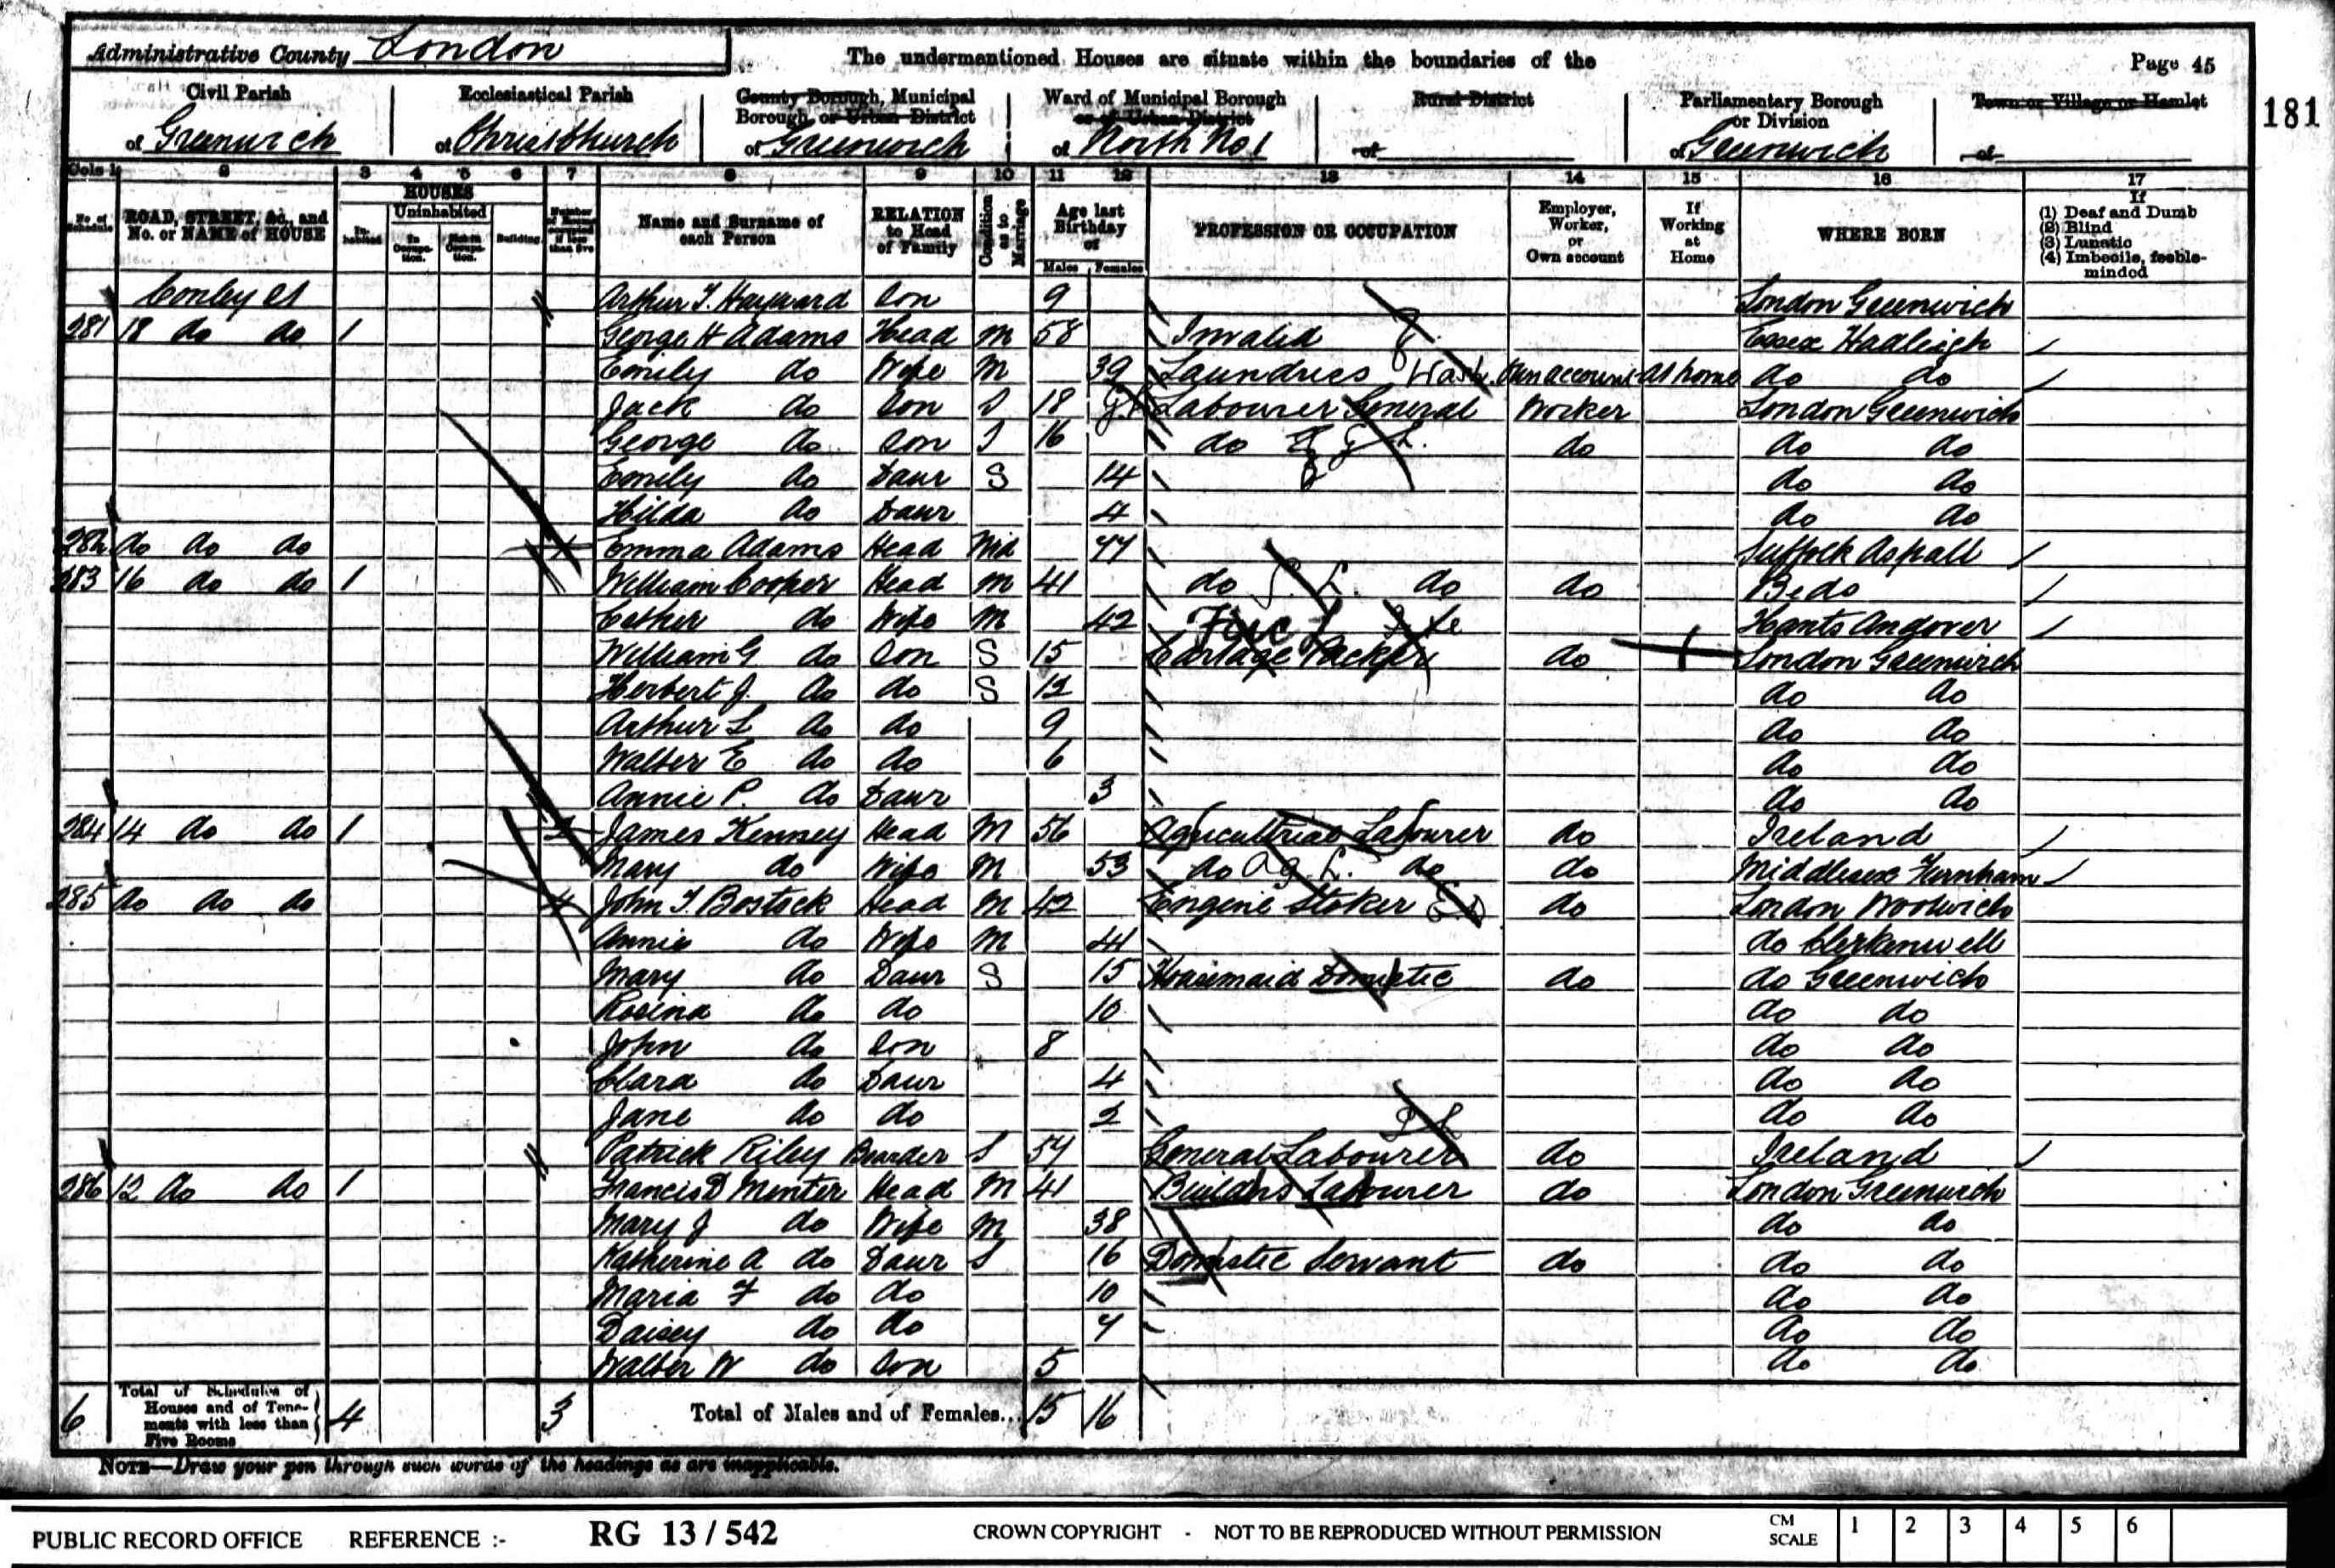 Administrative County London
The undermentioned Houses are situate within the boundaries of the
Page 45
181
Civil Parish
of Greenwich
Ecclesiastical Parish
of Christchurch
County Borough, Municipal
Borough, or Urban District
of Greenwich
Ward of Municipal Borough
or of Urban District
of North No 1
Rural District
of
Parliamentary Borough
or Division
of Greenwich
Town or Village or Hamlet
of
Cols 1 2 3 4 5 6 7 8 9 10 11 12 13 14 15 16 17
No. of Schedule
ROAD, STREET, &c., and
No. or NAME of HOUSE
HOUSES
Inhabited
Uninhabited
In Occupation.
Not in Occupation.
Building
Number of Rooms occupied if less than five
Name and Surname of
each Person
RELATION
to Head
of Family
Condition as to Marriage
Age last
Birthday
of
Males Females
PROFESSION OR OCCUPATION
Employer,
Worker,
or
Own account
If
Working
at
Home
WHERE BORN
If
(1) Deaf and Dumb
(2) Blind
(3) Lunatic
(4) Imbecile, feeble-
minded
Conley St Arthur T. Hayward Son 9 London Greenwich
281 18 do do 1 George H Adams Head M 58 Invalid Essex Hadleigh
Emily do Wife M 39 Laundress Wash. Own account At home do do
Jack do Son S 18 Labourer General Worker London Greenwich
George do Son S 16 do do do do
Emily do Daur S 14 do do
Hilda do Daur 4 do do
282 do do do 1 Emma Adams Head Wid 77 Suffolk Aspall
283 16 do do 1 William Cooper Head M 41 do do do Beds
Esther do Wife M 42 Hants Andover
William G do Son S 15 Packer do London Greenwich
Herbert J. do do S 12 do do
Arthur L do do 9 do do
Walter E do do 6 do do
Annie P. do Daur 3 do do
284 14 do do 1 James Kenney Head M 56 Agricultural Labourer do Ireland
Mary do Wife M 53 do Ag. L. do do Middlesex
285 do do do 4 John T. Bostock Head M 42 Engine Stoker do London Woolwich
Annie do Wife M 41 do Clerkenwell
Mary do Daur S 15 Housemaid Domestic do do Greenwich
Rosina do do 10 do do
John do Son 8 do do
Clara do Daur 4 do do
Jane do do 2 do do
Patrick Riley Boarder S 54 General Labourer do Ireland
286 12 do do 1 Francis D Menter Head M 41 Builders Labourer do London Greenwich
Mary J do Wife M 38 do do
Katherine A do Daur S 16 Domestic Servant do do do
Maria F do do 10 do do
Daisey do do 7 do do
Walter W do Son 5 do do
6 Total of Schedules of
Houses and of Tene-
ments with less than
Five Rooms 4 3 Total of Males and of Females... 15 16
NOTE—Draw your pen through such words of the headings as are inapplicable.
PUBLIC RECORD OFFICE REFERENCE :- RG 13 / 542 CROWN COPYRIGHT - NOT TO BE REPRODUCED WITHOUT PERMISSION CM SCALE 1 2 3 4 5 6